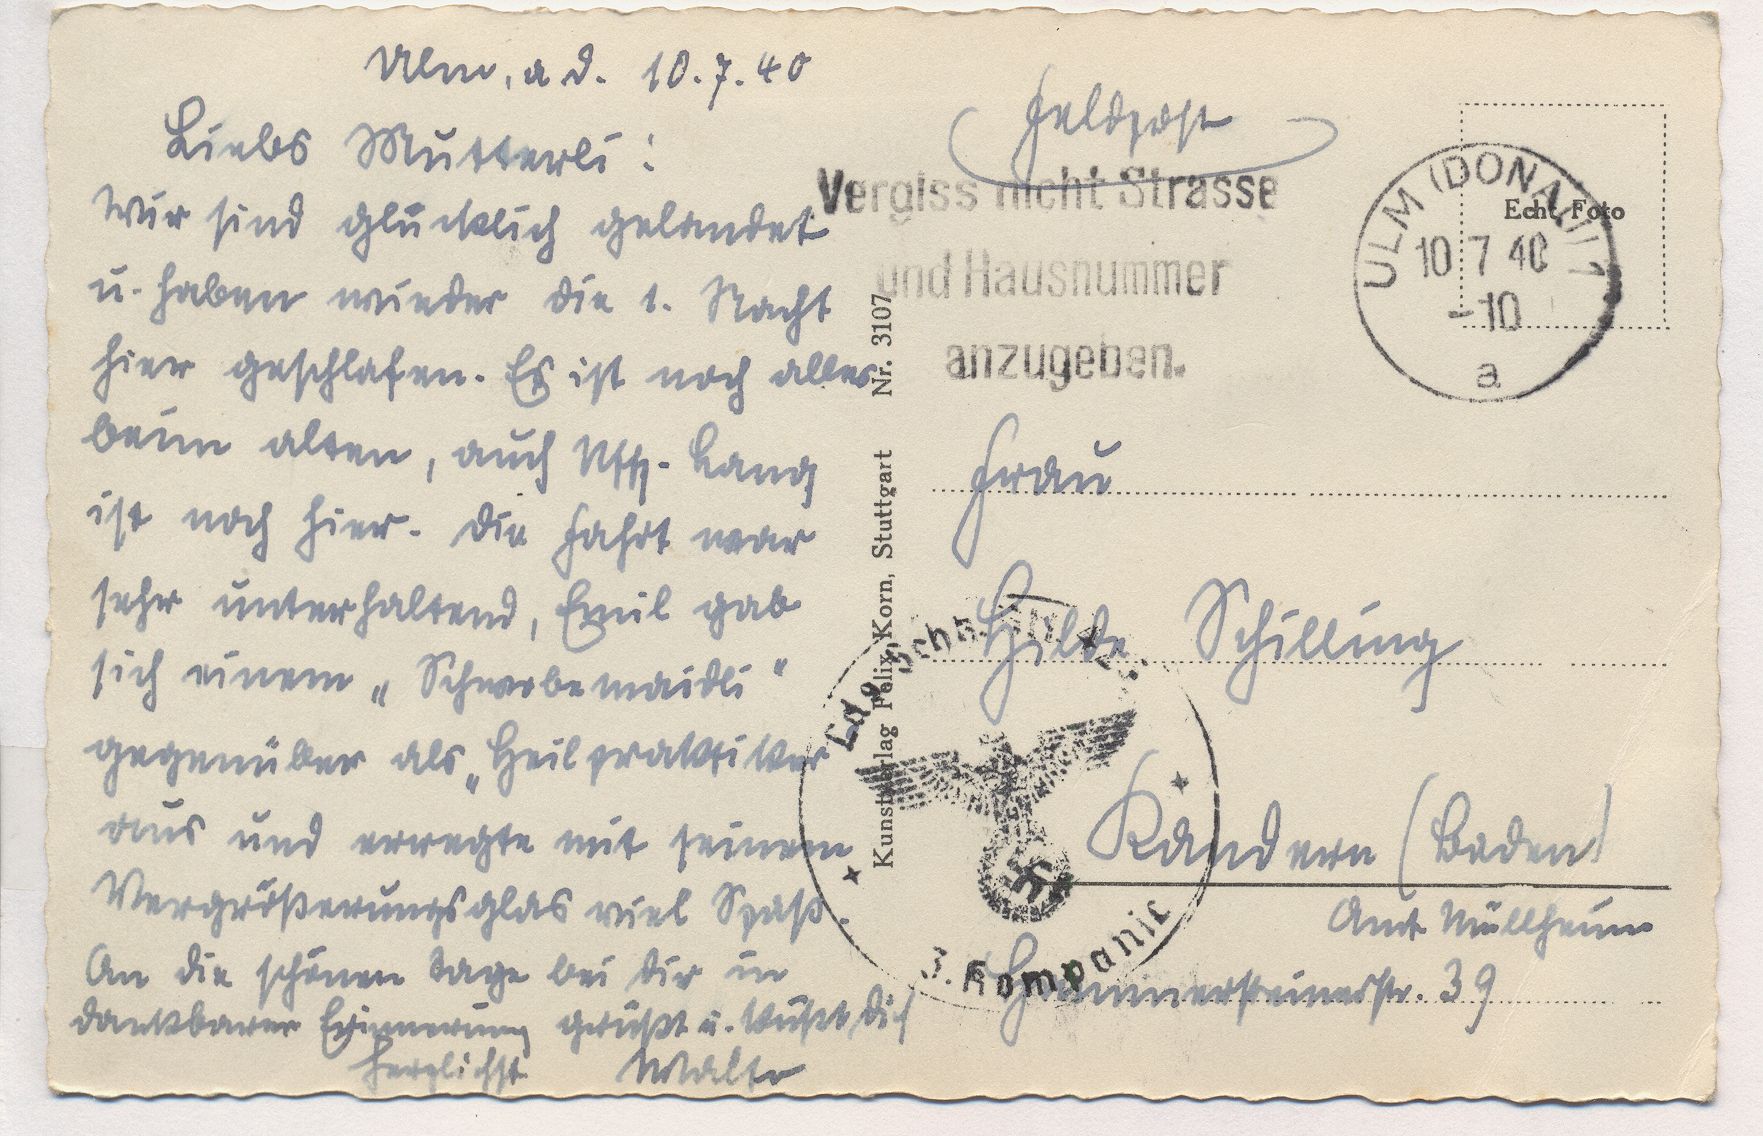 Ulm, a. d. 10.7.40
Liebs Mutterli!
Wir sind glücklich gelandet
u. haben wieder die 1. Nacht
hier geschlafen. Es ist noch alles
beim alten, auch Uffz. Lang
ist noch hier. Die Fahrt war
sehr unterhaltend, Emil gab
sich einem „Schwobemaidli"
gegenüber als „Heilpraktiker
aus und erregte mit seinem
Vergrößerungsglas viel Spaß.
An die schönen Tage bei Dir in
dankbarer Erinnerung grüßt u. küßt Dich
herzlichst
Feldpost
Vergiss nicht Strasse
und Hausnummer
anzugeben.
ULM (DONAU) 1
10 7 40
-10
a
Echt Foto
Kunstverlag Felix Korn, Stuttgart Nr. 3107
Frau
Hilde Schilling
Kandern (Baden)
Amt Müllheim
39
3. Kompanie